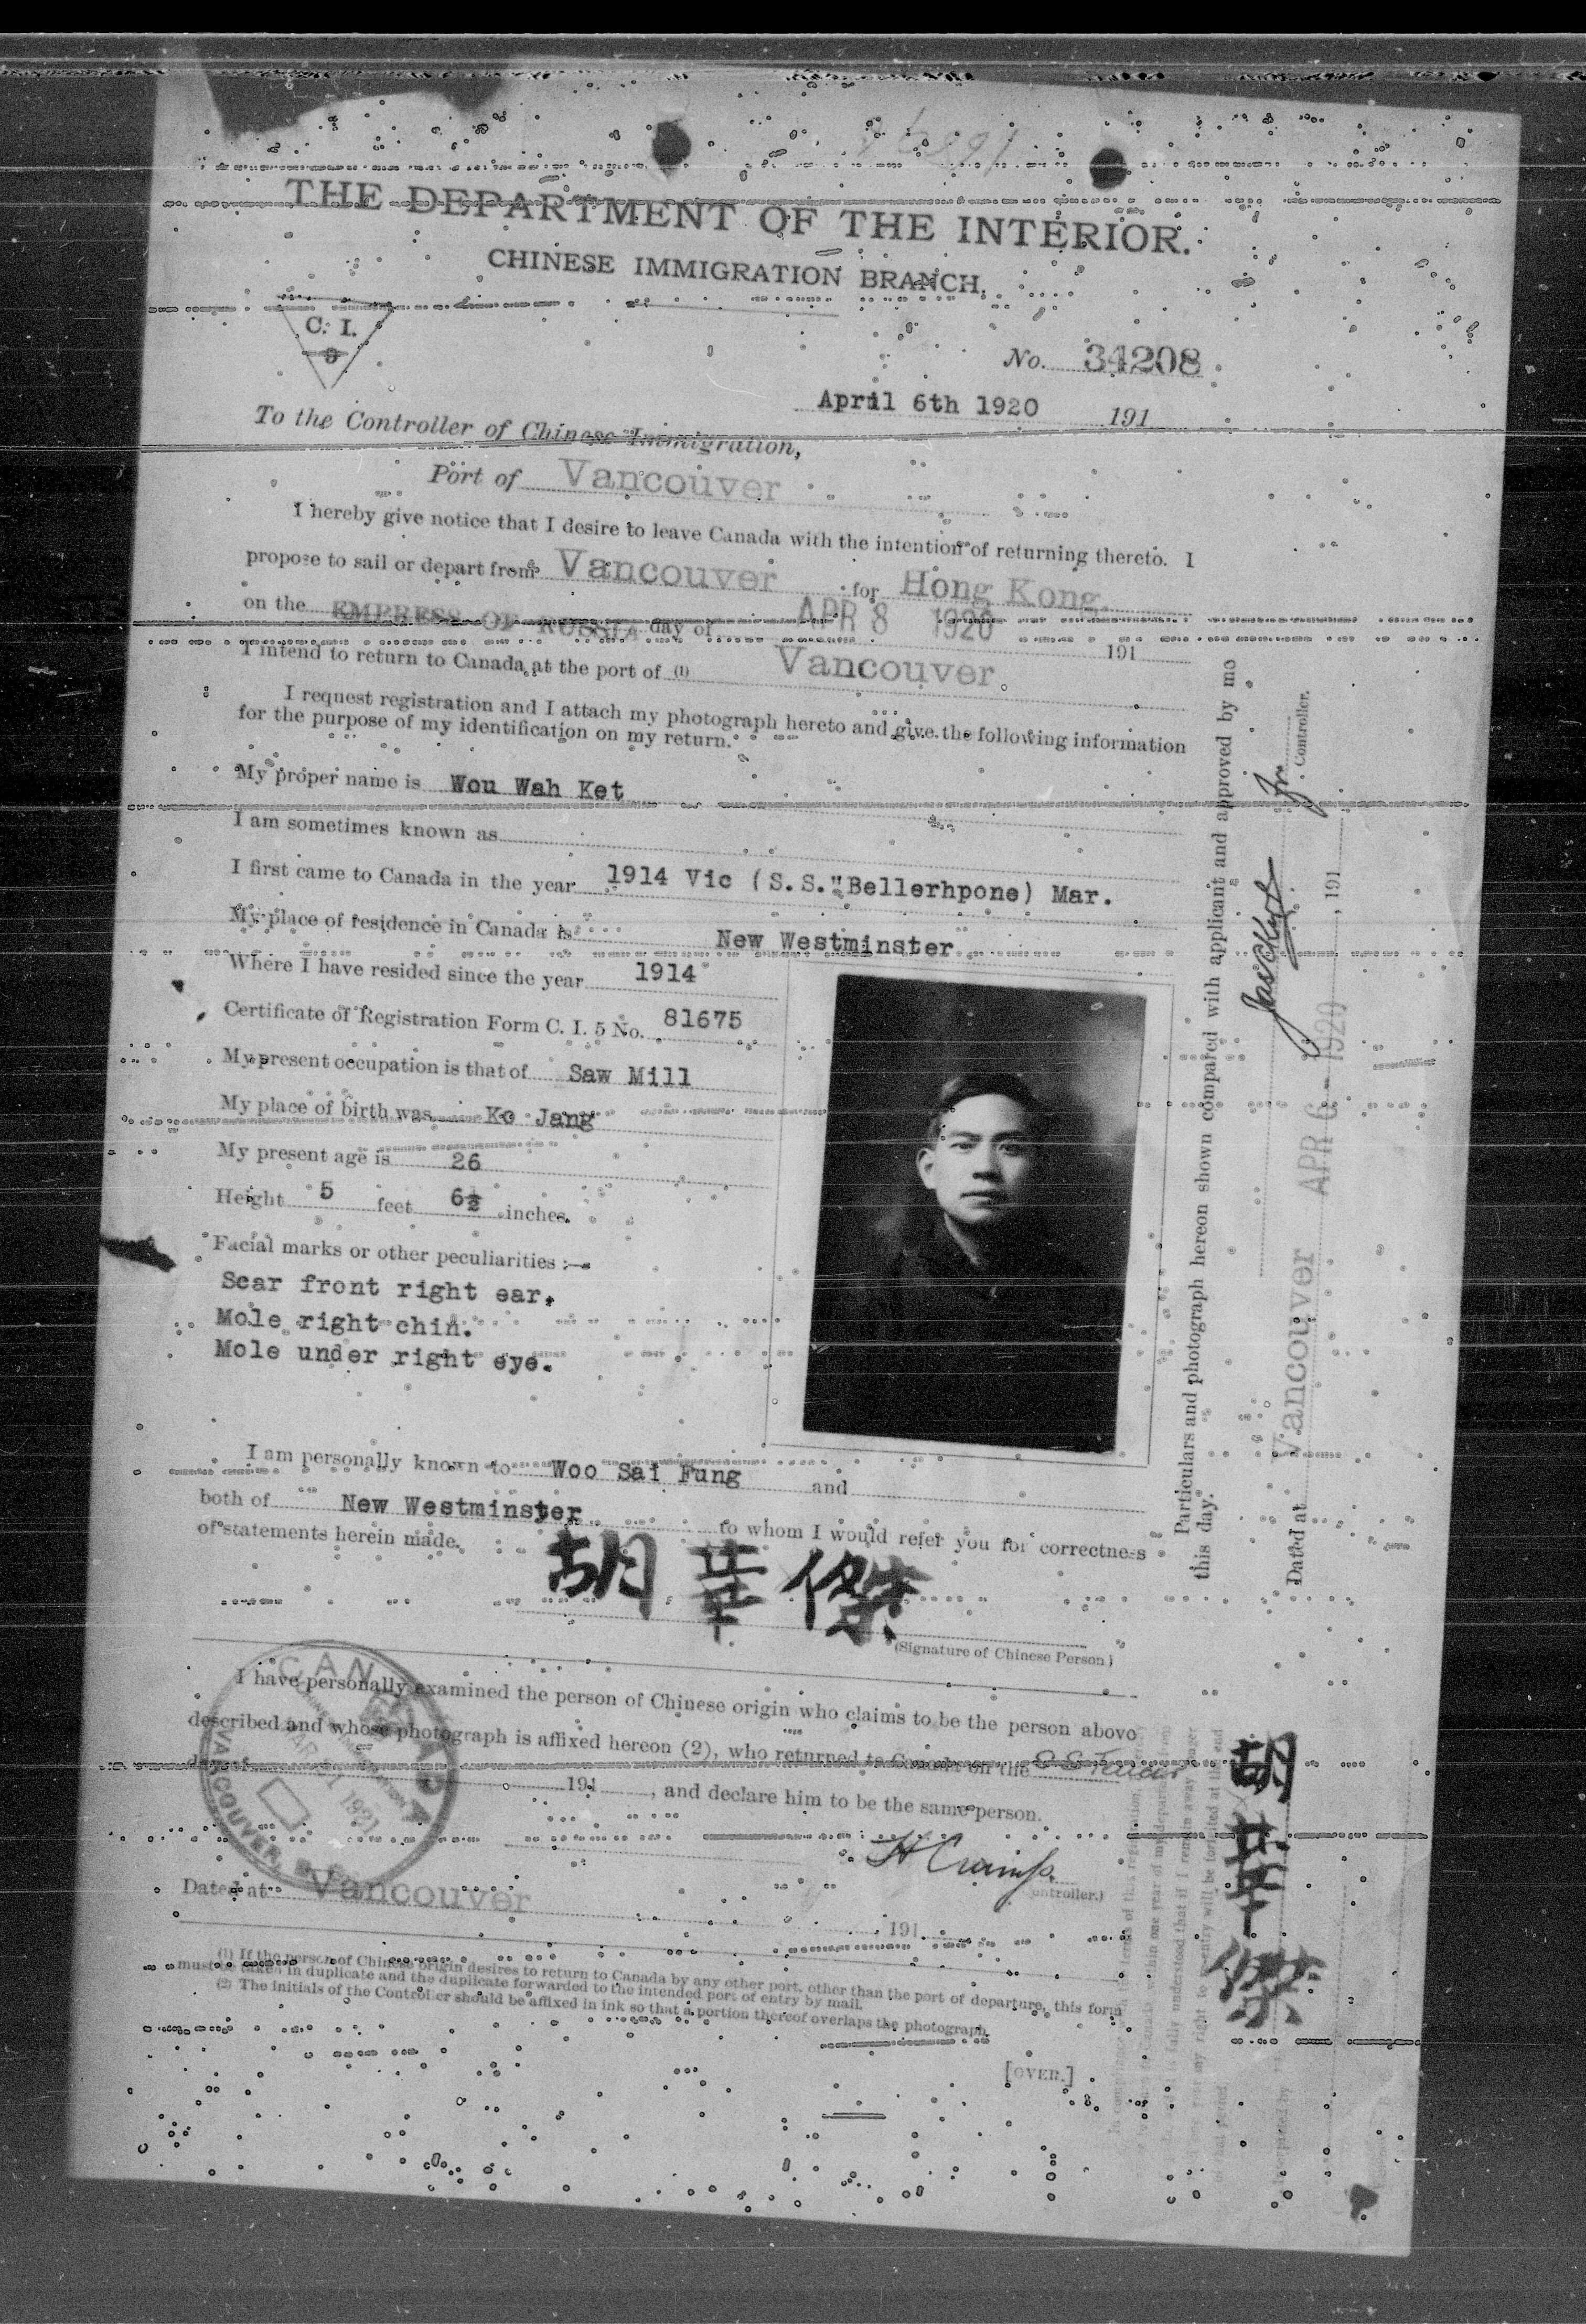 THE DEPARTMENT OF THE INTERIOR.
CHINESE IMMIGRATION BRANCH.
C. I.
9
No. 34208
April 6th 1920 191
To the Controller of Chinese Immigration,
Port of Vancouver
I hereby give notice that I desire to leave Canada with the intention of returning thereto. I
propose to sail or depart from Vancouver for Hong Kong.
on the EMPRESS OF RUSSIA day of APR 8 1920 191
I intend to return to Canada at the port of (1) Vancouver
I request registration and I attach my photograph hereto and give the following information
for the purpose of my identification on my return.
My proper name is Wou Wah Ket
I am sometimes known as
I first came to Canada in the year 1914 Vic (S.S."Bellerhpone) Mar.
My place of residence in Canada is New Westminster
Where I have resided since the year 1914
Certificate of Registration Form C. I. 5 No. 81675
My present occupation is that of Saw Mill
My place of birth was Ko Jang
My present age is 26
Height 5 feet 6½ inches.
Facial marks or other peculiarities :—
Scar front right ear.
Mole right chin.
Mole under right eye.
I am personally known to Woo Sai Fung and
both of New Westminster to whom I would refer you for correctness
of statements herein made.
胡華傑
(Signature of Chinese Person)
I have personally examined the person of Chinese origin who claims to be the person above
described and whose photograph is affixed hereon (2), who returned to Canada on the
day of 191 , and declare him to be the same person.
CANADA
VANCOUVER, B.C.
1921
Controller.)
Dated at Vancouver 191
(1) If the person of Chinese origin desires to return to Canada by any other port, other than the port of departure, this form
must be taken in duplicate and the duplicate forwarded to the intended port of entry by mail.
(2) The initials of the Controller should be affixed in ink so that a portion thereof overlaps the photograph.
[OVER.]
Particulars and photograph hereon shown compared with applicant and approved by me
this day.
Controller.
Dated at Vancouver APR 6 - 1920 , 191
胡華傑